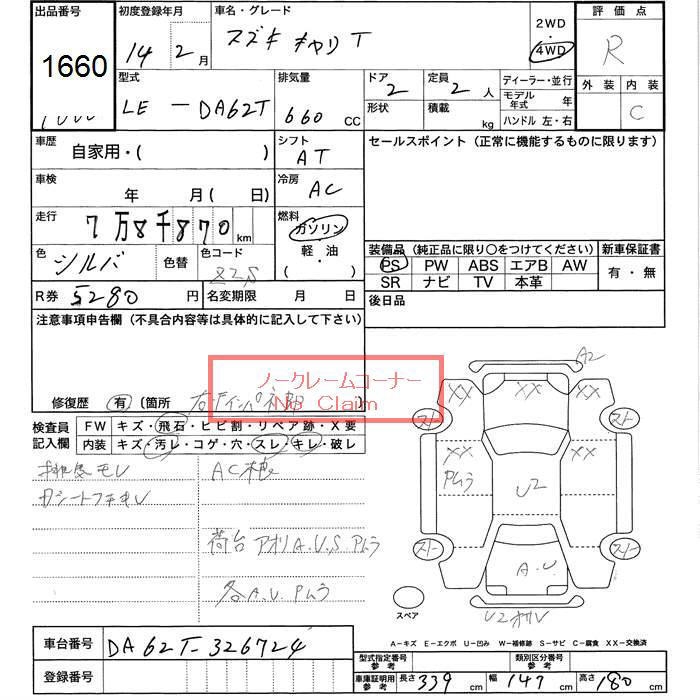 出品番号 初度登録年月 車名・グレード 2WD 評価点
1660 14 2月 スズキ キャリイ T 4WD R
型式 排気量 ドア 定員 ディーラー・並行 外装 内装
LE - DA62T 660 CC 2 2 人 モデル年式 年 C
形状 積載 kg ハンドル 左・右
車歴 自家用・( ) シフト AT セールスポイント (正常に機能するものに限ります)
車検 年 月(日) 冷房 AC
走行 7万8千870 km 燃料 ガソリン
軽・油
色 シルバ 色替 色コード Z2S 装備品 (純正品に限り○をつけてください) 新車保証書
PS PW ABS エアB AW 有・無
SR ナビ TV 本革
R券 5280 円 名変期限 月 日 後日品
注意事項申告欄 (不具合内容等は具体的に記入して下さい)
ノークレームコーナー
No Claim
修復歴 有 (箇所
検査員 FW キズ・飛石・ヒビ割・リペア跡・X要
記入欄 内装 キズ・汚レ・コゲ・穴・スレ・キレ・破レ
排気モレ AC
荷台 アオリ A.U.S. Pムラ
各A.U. Pムラ
A2
XX XX XX
XX XX
Pムラ
U2
A.U.
スペア
A-キズ E-エクボ U-凹み W-補修跡 S-サビ C-腐食 XX-交換済
車台番号 DA62T-326724
登録番号
型式指定番号 参考 類別区分番号 参考
車庫証明用 参考 長さ 339 cm 幅 147 cm 高さ 180 cm